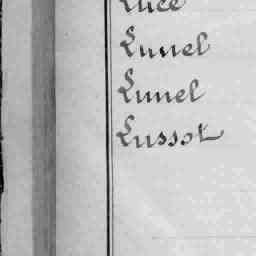 Luce
Lunel
Lunel
Lussot